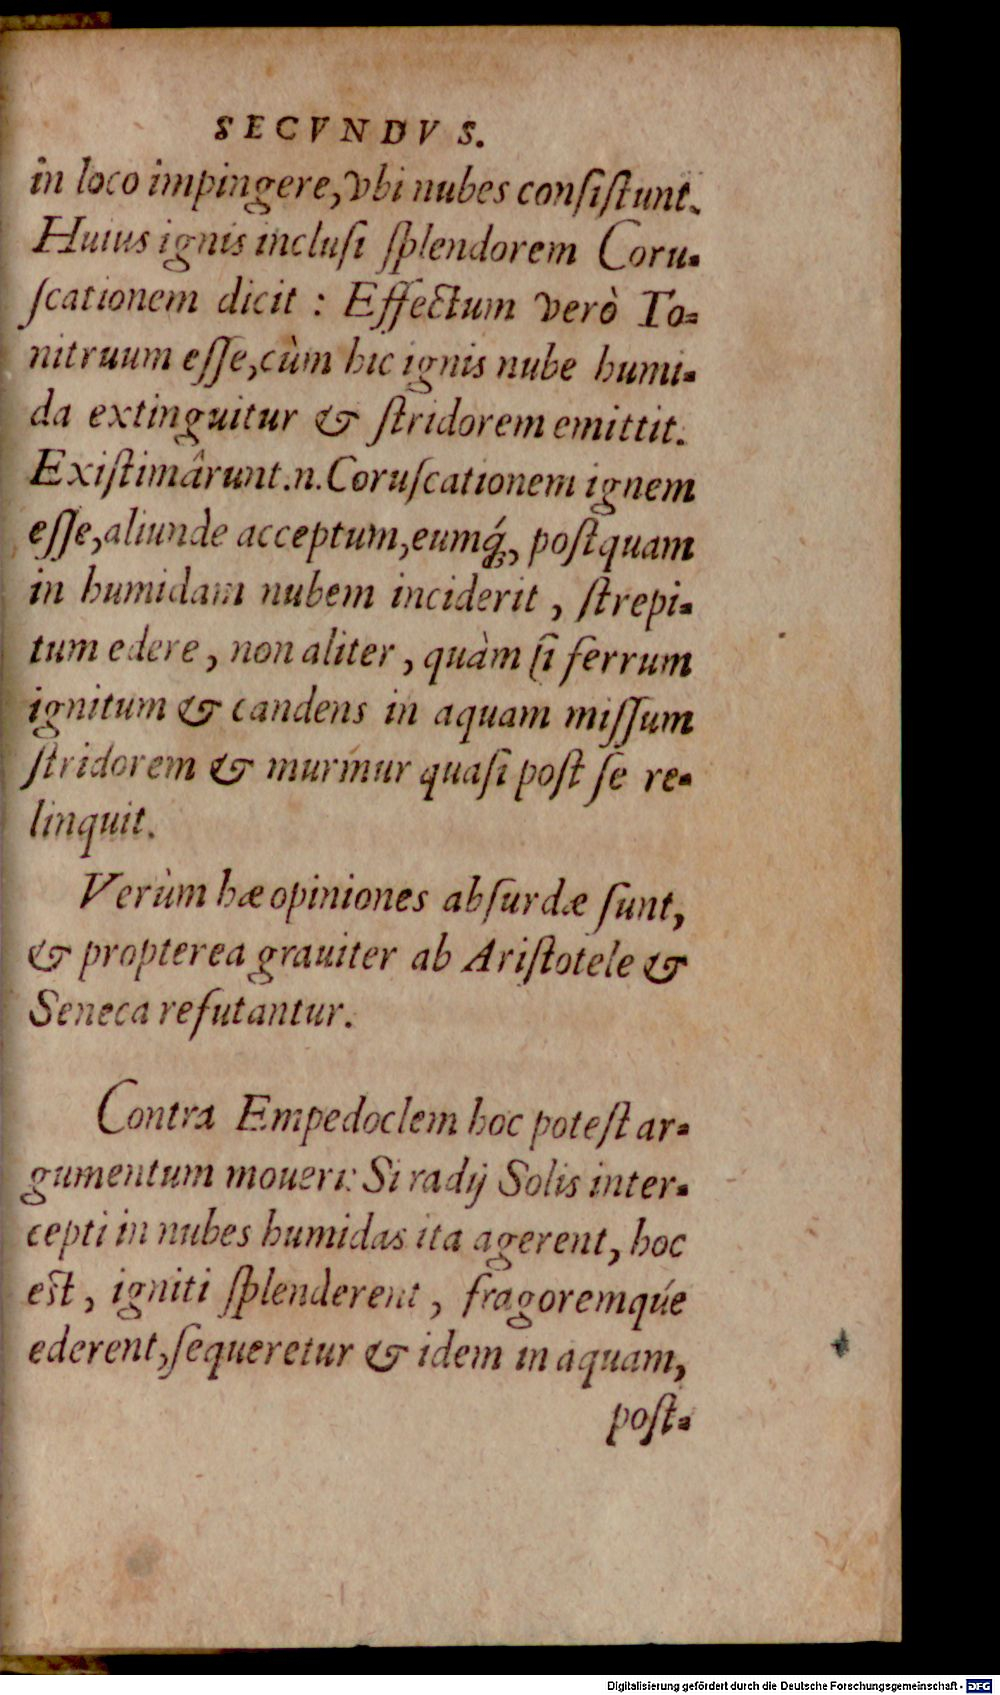 SECVNDVS.
in loco impingere, vbi nubes conſiſtunt.
Huius ignis incluſi ſplendorem Coru-
ſcationem dicit : Effectum verò To-
nitruum eſſe, cùm hic ignis nube humi-
da extinguitur & ſtridorem emittit.
Exiſtimârunt.n. Coruſcationem ignem
eſſe, aliunde acceptum, eumq́;, poſtquam
in humidam nubem inciderit, ſtrepi-
tum edere, non aliter, quàm ſi ferrum
ignitum & candens in aquam miſſum
ſtridorem & murmur quaſi poſt ſe re-
linquit.
Verùm hæ opiniones abſurdæ ſunt,
& propterea grauiter ab Ariſtotele &
Seneca refutantur.
Contra Empedoclem hoc poteſt ar-
gumentum moueri: Si radij Solis inter-
cepti in nubes humidas ita agerent, hoc
eſt, igniti ſplenderent, fragoremqúe
ederent, ſequeretur & idem in aquam,
poſt-
Digitalisierung gefördert durch die Deutsche Forschungsgemeinschaft - DFG